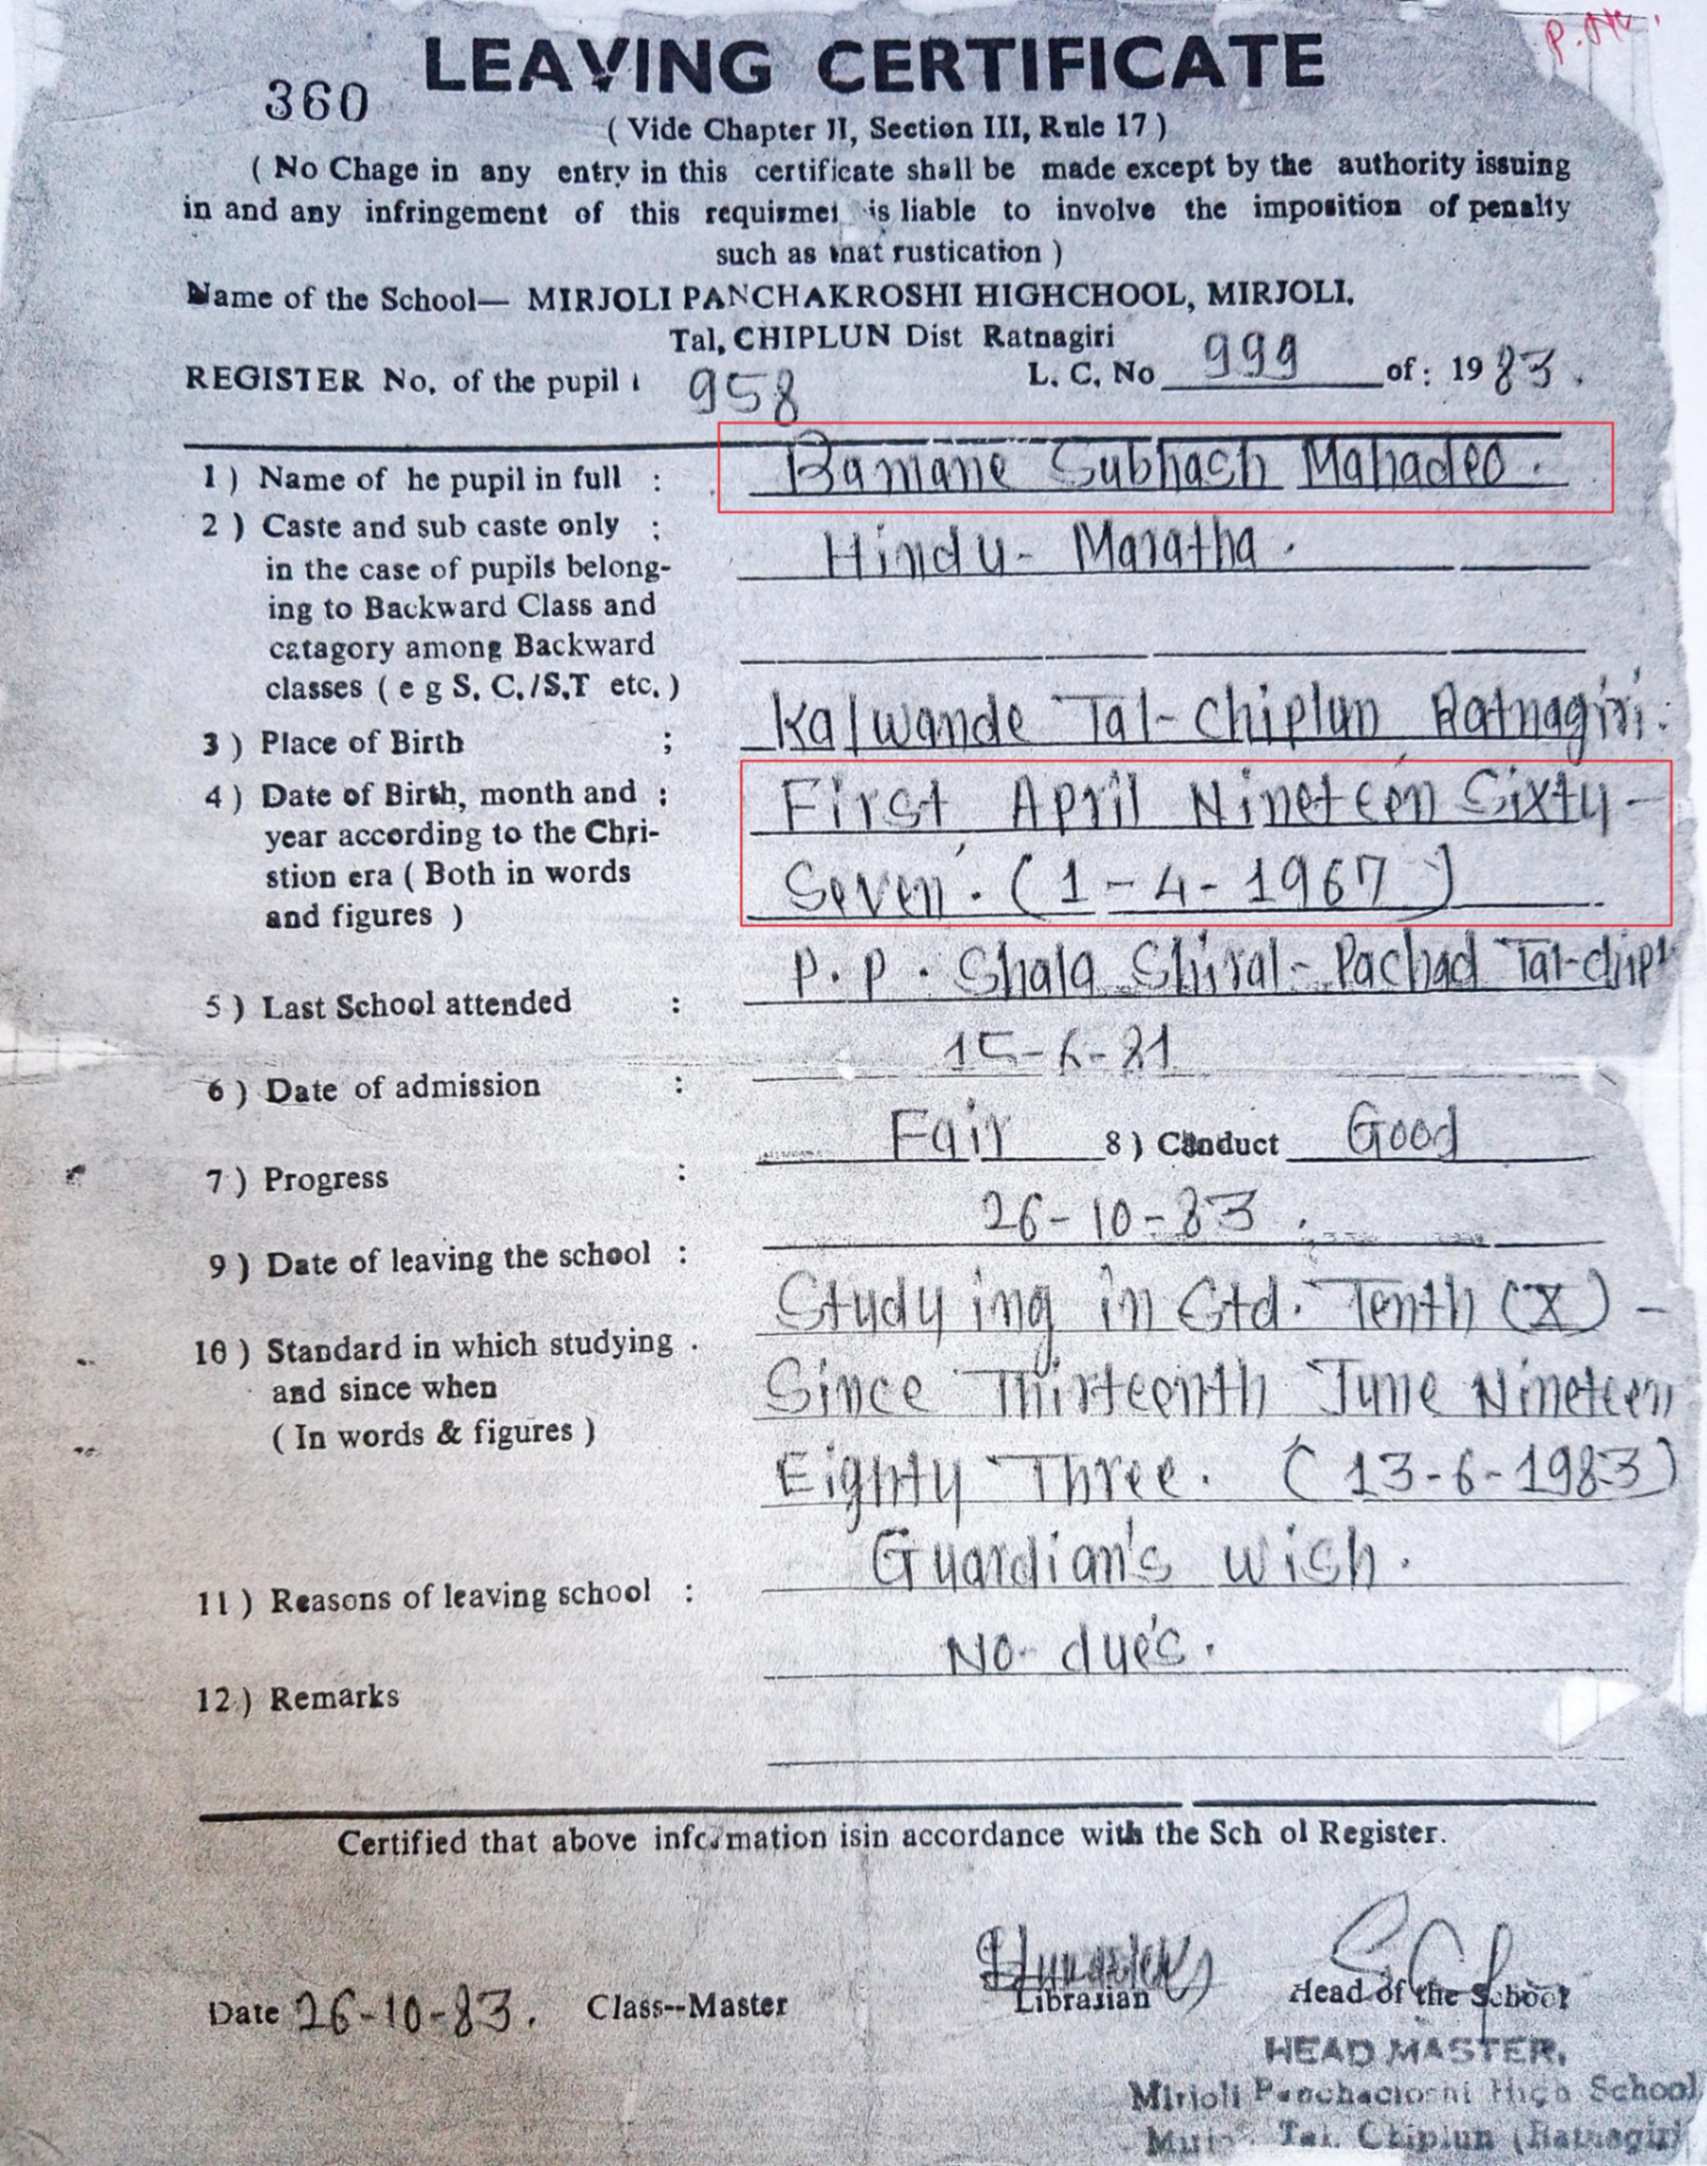 P.
LEAVING CERTIFICATE
360
( Vide Chapter II, Section III, Rule 17 )
( No Chage in any entry in this certificate shall be made except by the authority issuing
in and any infringement of this requirmei is liable to involve the imposition of penalty
such as that rustication )
Name of the School— MIRJOLI PANCHAKROSHI HIGHCHOOL, MIRJOLI.
Tal, CHIPLUN Dist Ratnagiri
REGISTER No. of the pupil : 958 L. C. No 999 of : 1983.
1 ) Name of he pupil in full : Bamane Subhash Mahadeo.
2 ) Caste and sub caste only : Hindu - Maratha.
in the case of pupils belong-
ing to Backward Class and
catagory among Backward
classes ( e g S. C./S.T etc. )
3 ) Place of Birth ; Kalwande Tal-Chiplun Ratnagiri.
4 ) Date of Birth, month and : First April Nineteen Sixty -
year according to the Chri-
stion era ( Both in words Seven. (1-4-1967)
and figures )
5 ) Last School attended : P. P. Shala Shiral - Pachad Tal-chipl
6 ) Date of admission : 15-6-81
7 ) Progress : Fair 8 ) Conduct Good
9 ) Date of leaving the school : 26-10-83.
10 ) Standard in which studying . Studying in Std. Tenth (X) -
and since when Since Thirteenth June Nineteen
( In words & figures ) Eighty Three. (13-6-1983)
11 ) Reasons of leaving school : Guardian's wish.
12 ) Remarks No due's.
Certified that above information isin accordance with the Sch ol Register.
Date 26-10-83. Class--Master Librarian Head of the School
HEAD MASTER,
Mirjoli Panchacroshi High School
Tal. Chiplun (Ratnagiri